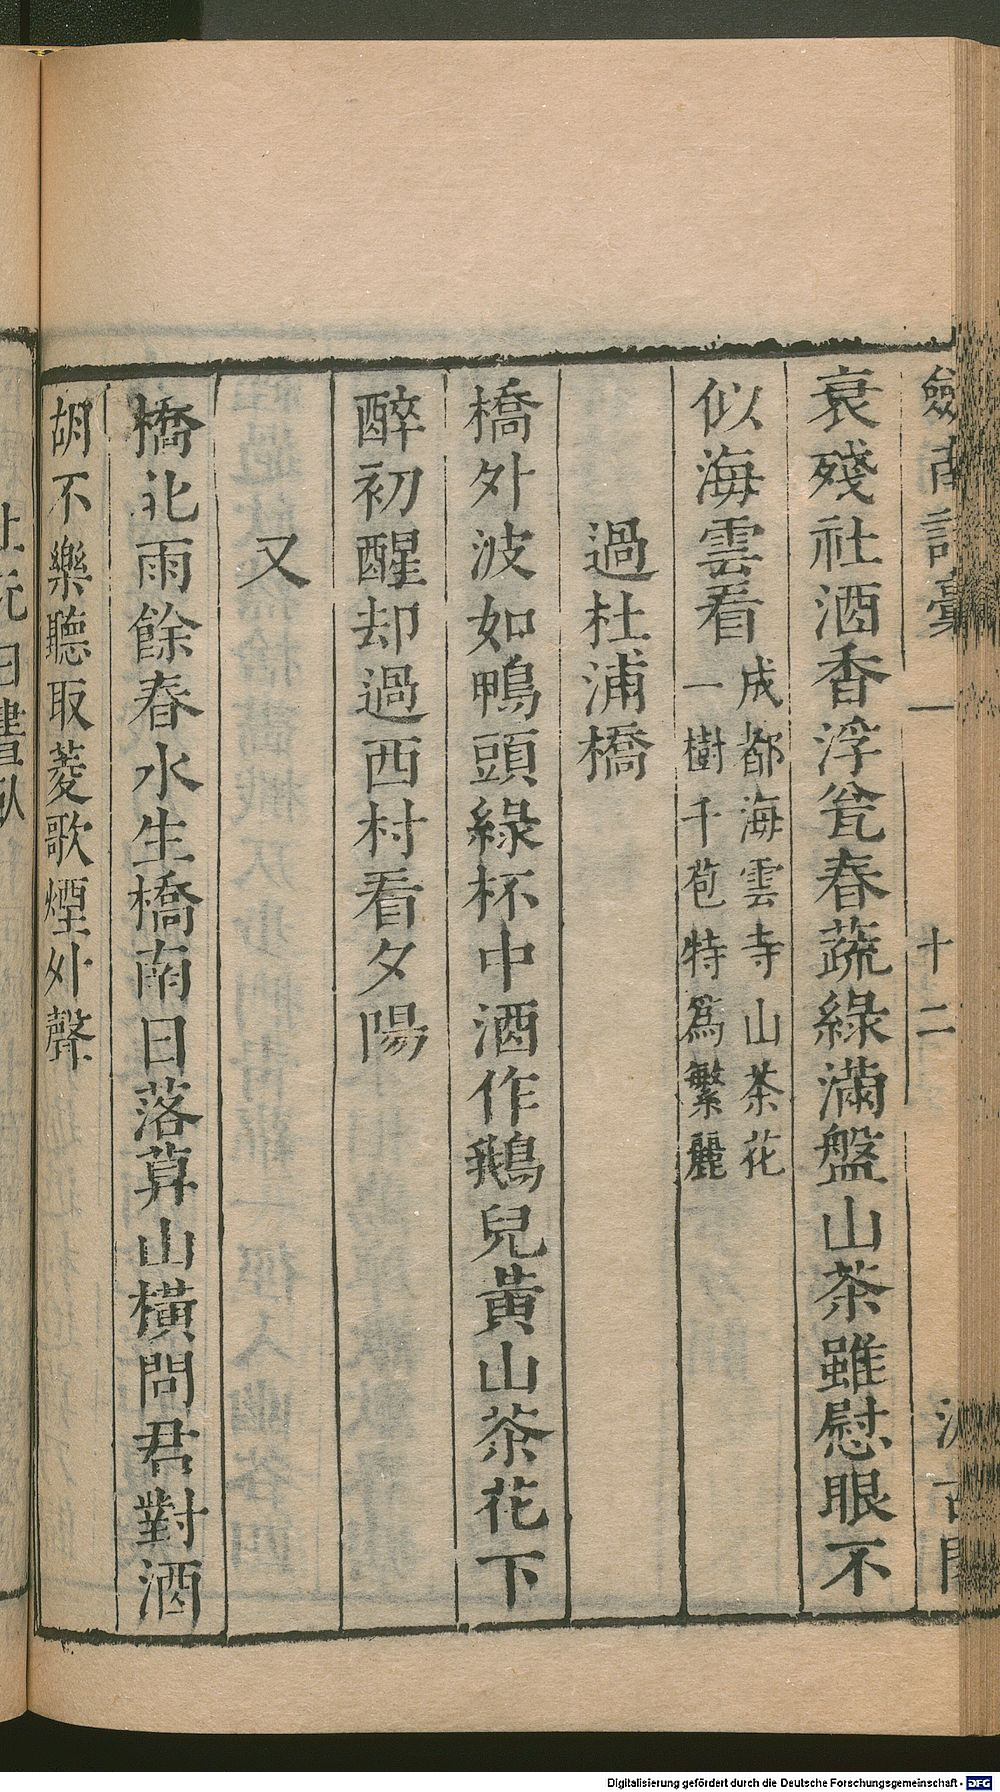 劍南詩稾 一 十二
衰殘社酒香浮瓮春蔬綠滿盤山茶雖慰眼不
似海雲看成都海雲寺山茶花
一樹千苞特爲繁麗
過杜浦橋
橋外波如鴨頭綠杯中酒作鵝兒黃山茶花下
醉初醒却過西村看夕陽
又
橋北雨餘春水生橋南日落暮山橫問君對酒
胡不樂聽取菱歌煙外聲
Digitalisierung gefördert durch die Deutsche Forschungsgemeinschaft - DFG